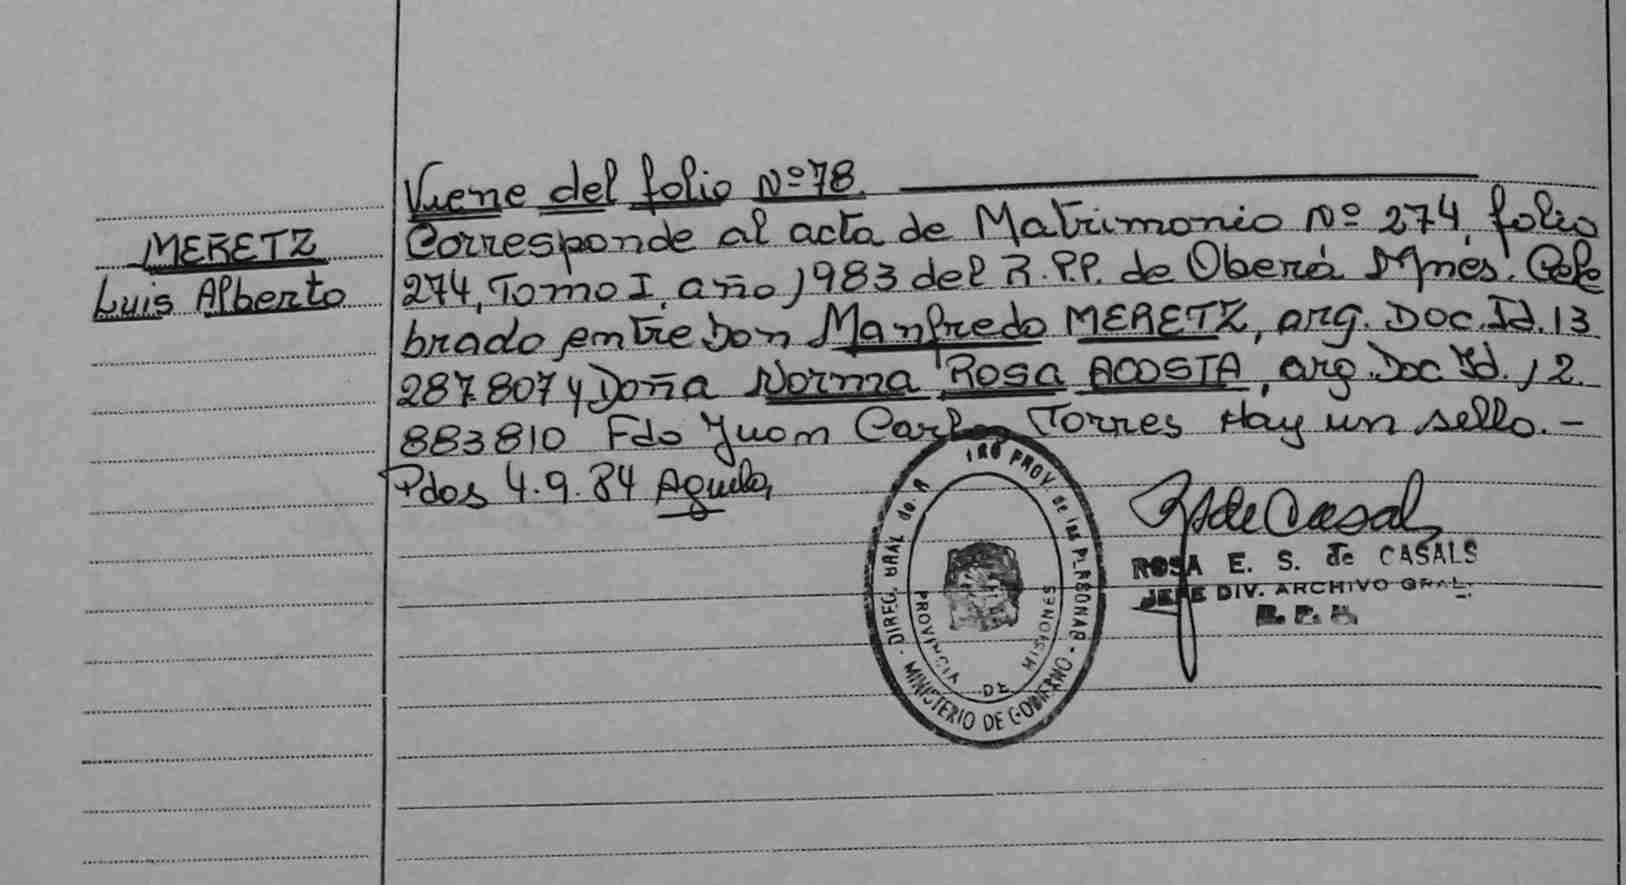 Viene del folio Nº 78.
MERETZ
Luis Alberto
Corresponde al acta de Matrimonio Nº 274, folio
274, Tomo I, año 1983 del R.P.P. de Oberá Mnes. Cele
brado entre Don Manfredo MERETZ, arg. Doc. Id. 13
287.807 y Doña Norma Rosa ACOSTA, arg. Doc Id. 12.
883810 Fdo Juan Carlos Torres Hay un sello. -
Pdas 4.9.84
DIREC. GRAL de PROV. de las PERSONAS - MINISTERIO DE GOBIERNO -
PROVINCIA DE MISIONES
de Casals
ROSA E. S. de CASALS
JEFE DIV. ARCHIVO GRAL.